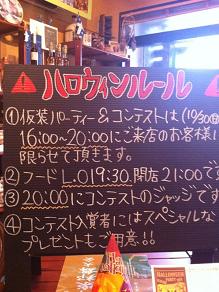 ハロウィンルール
①仮装パーティー&コンテストは(10/30㊐)
16:00~20:00にご来店のお客様に
限らせて頂きます。
②フードL.O19:30.閉店21:00です
③20:00にコンテストのジャッジです
④コンテスト入賞者にはスペシャルな
プレゼントもご用意!!
HALLOWEEN